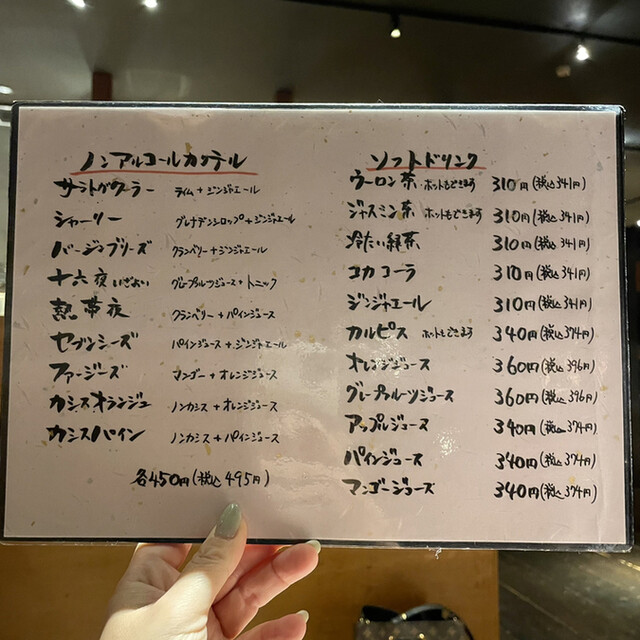 ノンアルコールカクテル
サラトガクーラー ライム+ジンジャエール
シャーリー グレナデンシロップ+ジンジャエール
バージンブリーズ クランベリー+ジンジャエール
十六夜いざよい グレープフルーツジュース+トニック
熱帯夜 クランベリー+パインジュース
セブンシーズ パインジュース+ジンジャエール
ファージーズ マンゴー+オレンジジュース
カシスオランジュ ノンカシス+オレンジジュース
カシスパイン ノンカシス+パインジュース
各450円(税込495円)
ソフトドリンク
ウーロン茶 ホットもできます 310円(税込341円)
ジャスミン茶 ホットもできます 310円(税込341円)
冷たい緑茶 310円(税込341円)
コカコーラ 310円(税込341円)
ジンジャエール 310円(税込341円)
カルピス ホットもできます 340円(税込374円)
オレンジジュース 360円(税込396円)
グレープフルーツジュース 360円(税込396円)
アップルジュース 340円(税込374円)
パインジュース 340円(税込374円)
マンゴージュース 340円(税込374円)